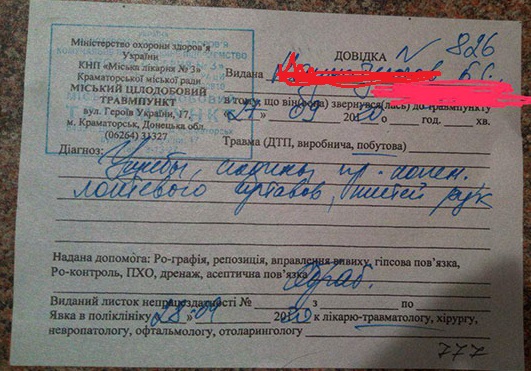 Міністерство охорони здоров'я
України
КНП «Міська лікарня № 3»
Краматорської міської ради
МІСЬКИЙ ЦІЛОДОБОВИЙ
ТРАВМПУНКТ
вул. Героїв України, 17,
м. Краматорськ, Донецька обл.
(06264) 31327
ДОВІДКА № 826
Видана
в тому, що він(вона) звернувся(лась) до травмпункту
«27» 09 2020 о год. хв.
Травма (ДТП, виробнича, побутова)
Діагноз: Ушибы, ссадины пр.
суставов, кистей рук
Надана допомога: Ро-графія, репозиція, вправлення вивиху, гіпсова пов'язка,
Ро-контроль, ПХО, дренаж, асептична пов'язка
Виданий листок непрацездатності № з по
Явка в поліклініку «28» 09 2020 к лікарю-травматологу, хірургу,
невропатологу, офтальмологу, отоларингологу
777